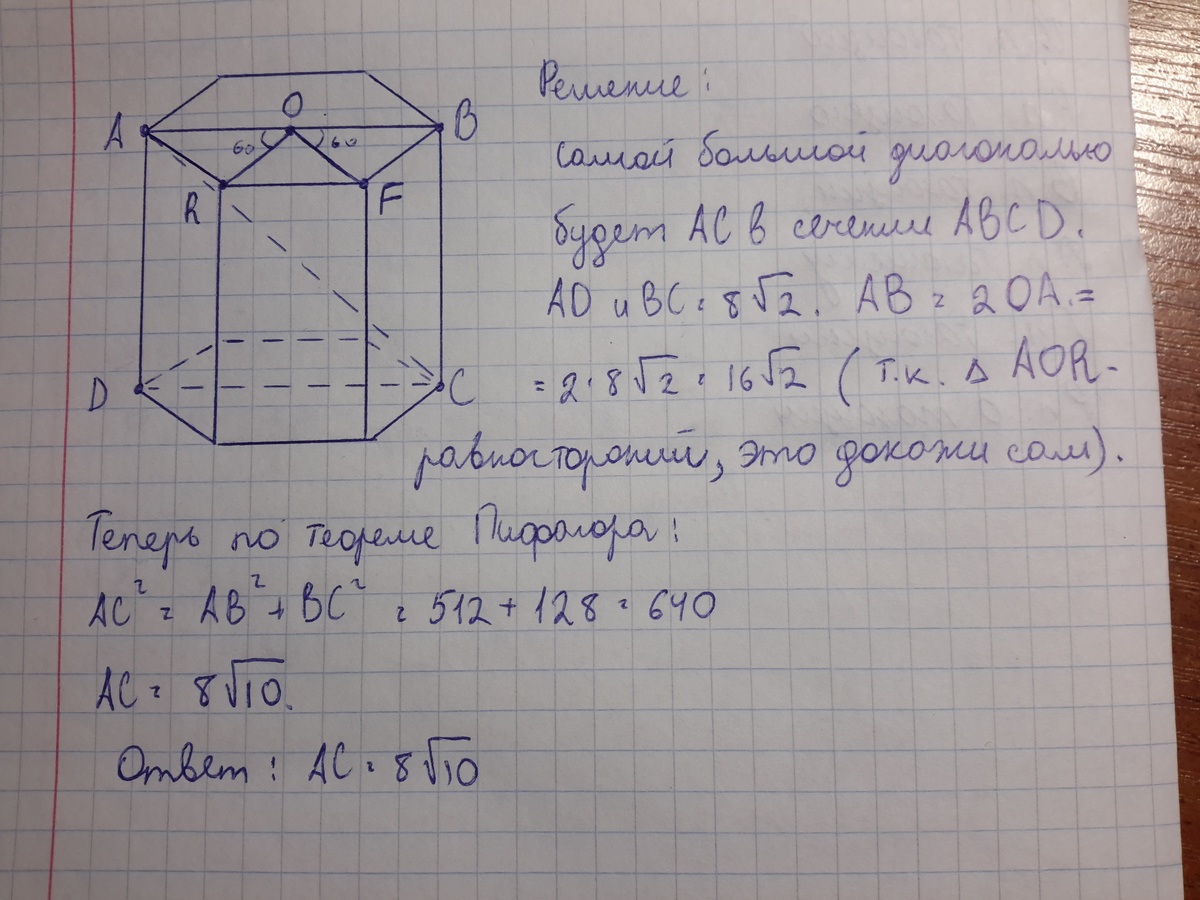 A
O
B
60
60
R
F
D
C
Решение:
самой большой диагональю
будет AC в сечении ABCD.
AD и BC = 8√2. AB = 2OA =
= 2·8√2 = 16√2 (т.к. Δ AOR-
равносторонний, это докажи сам).
Теперь по теореме Пифагора:
AC² = AB² + BC² = 512 + 128 = 640
AC = 8√10.
Ответ: AC = 8√10